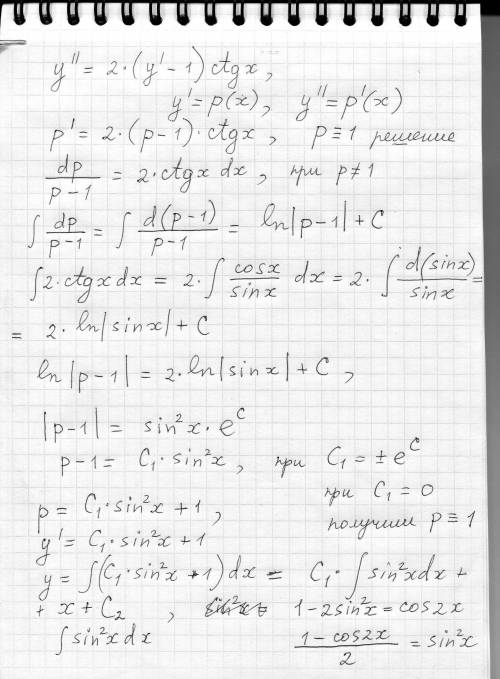 y'' = 2·(y' − 1) ctgx,
y' = p(x), y'' = p'(x)
p' = 2·(p−1)·ctgx, p ≡ 1 решение
dp/(p−1) = 2·ctgx dx, при p ≠ 1
∫ dp/(p−1) = ∫ d(p−1)/(p−1) = ln|p−1| + C
∫2·ctgx dx = 2·∫ cosx/sinx dx = 2·∫ d(sinx)/sinx =
= 2·ln|sinx| + C
ln|p−1| = 2·ln|sinx| + C,
|p−1| = sin²x·e^C
p−1 = C₁·sin²x, при C₁ = ±e^C
p = C₁·sin²x + 1, при C₁ = 0
получили p ≡ 1
y' = C₁·sin²x + 1
y = ∫(C₁·sin²x + 1)dx = C₁·∫sin²xdx +
+ x + C₂, 1−2sin²x = cos2x
∫sin²xdx (1−cos2x)/2 = sin²x